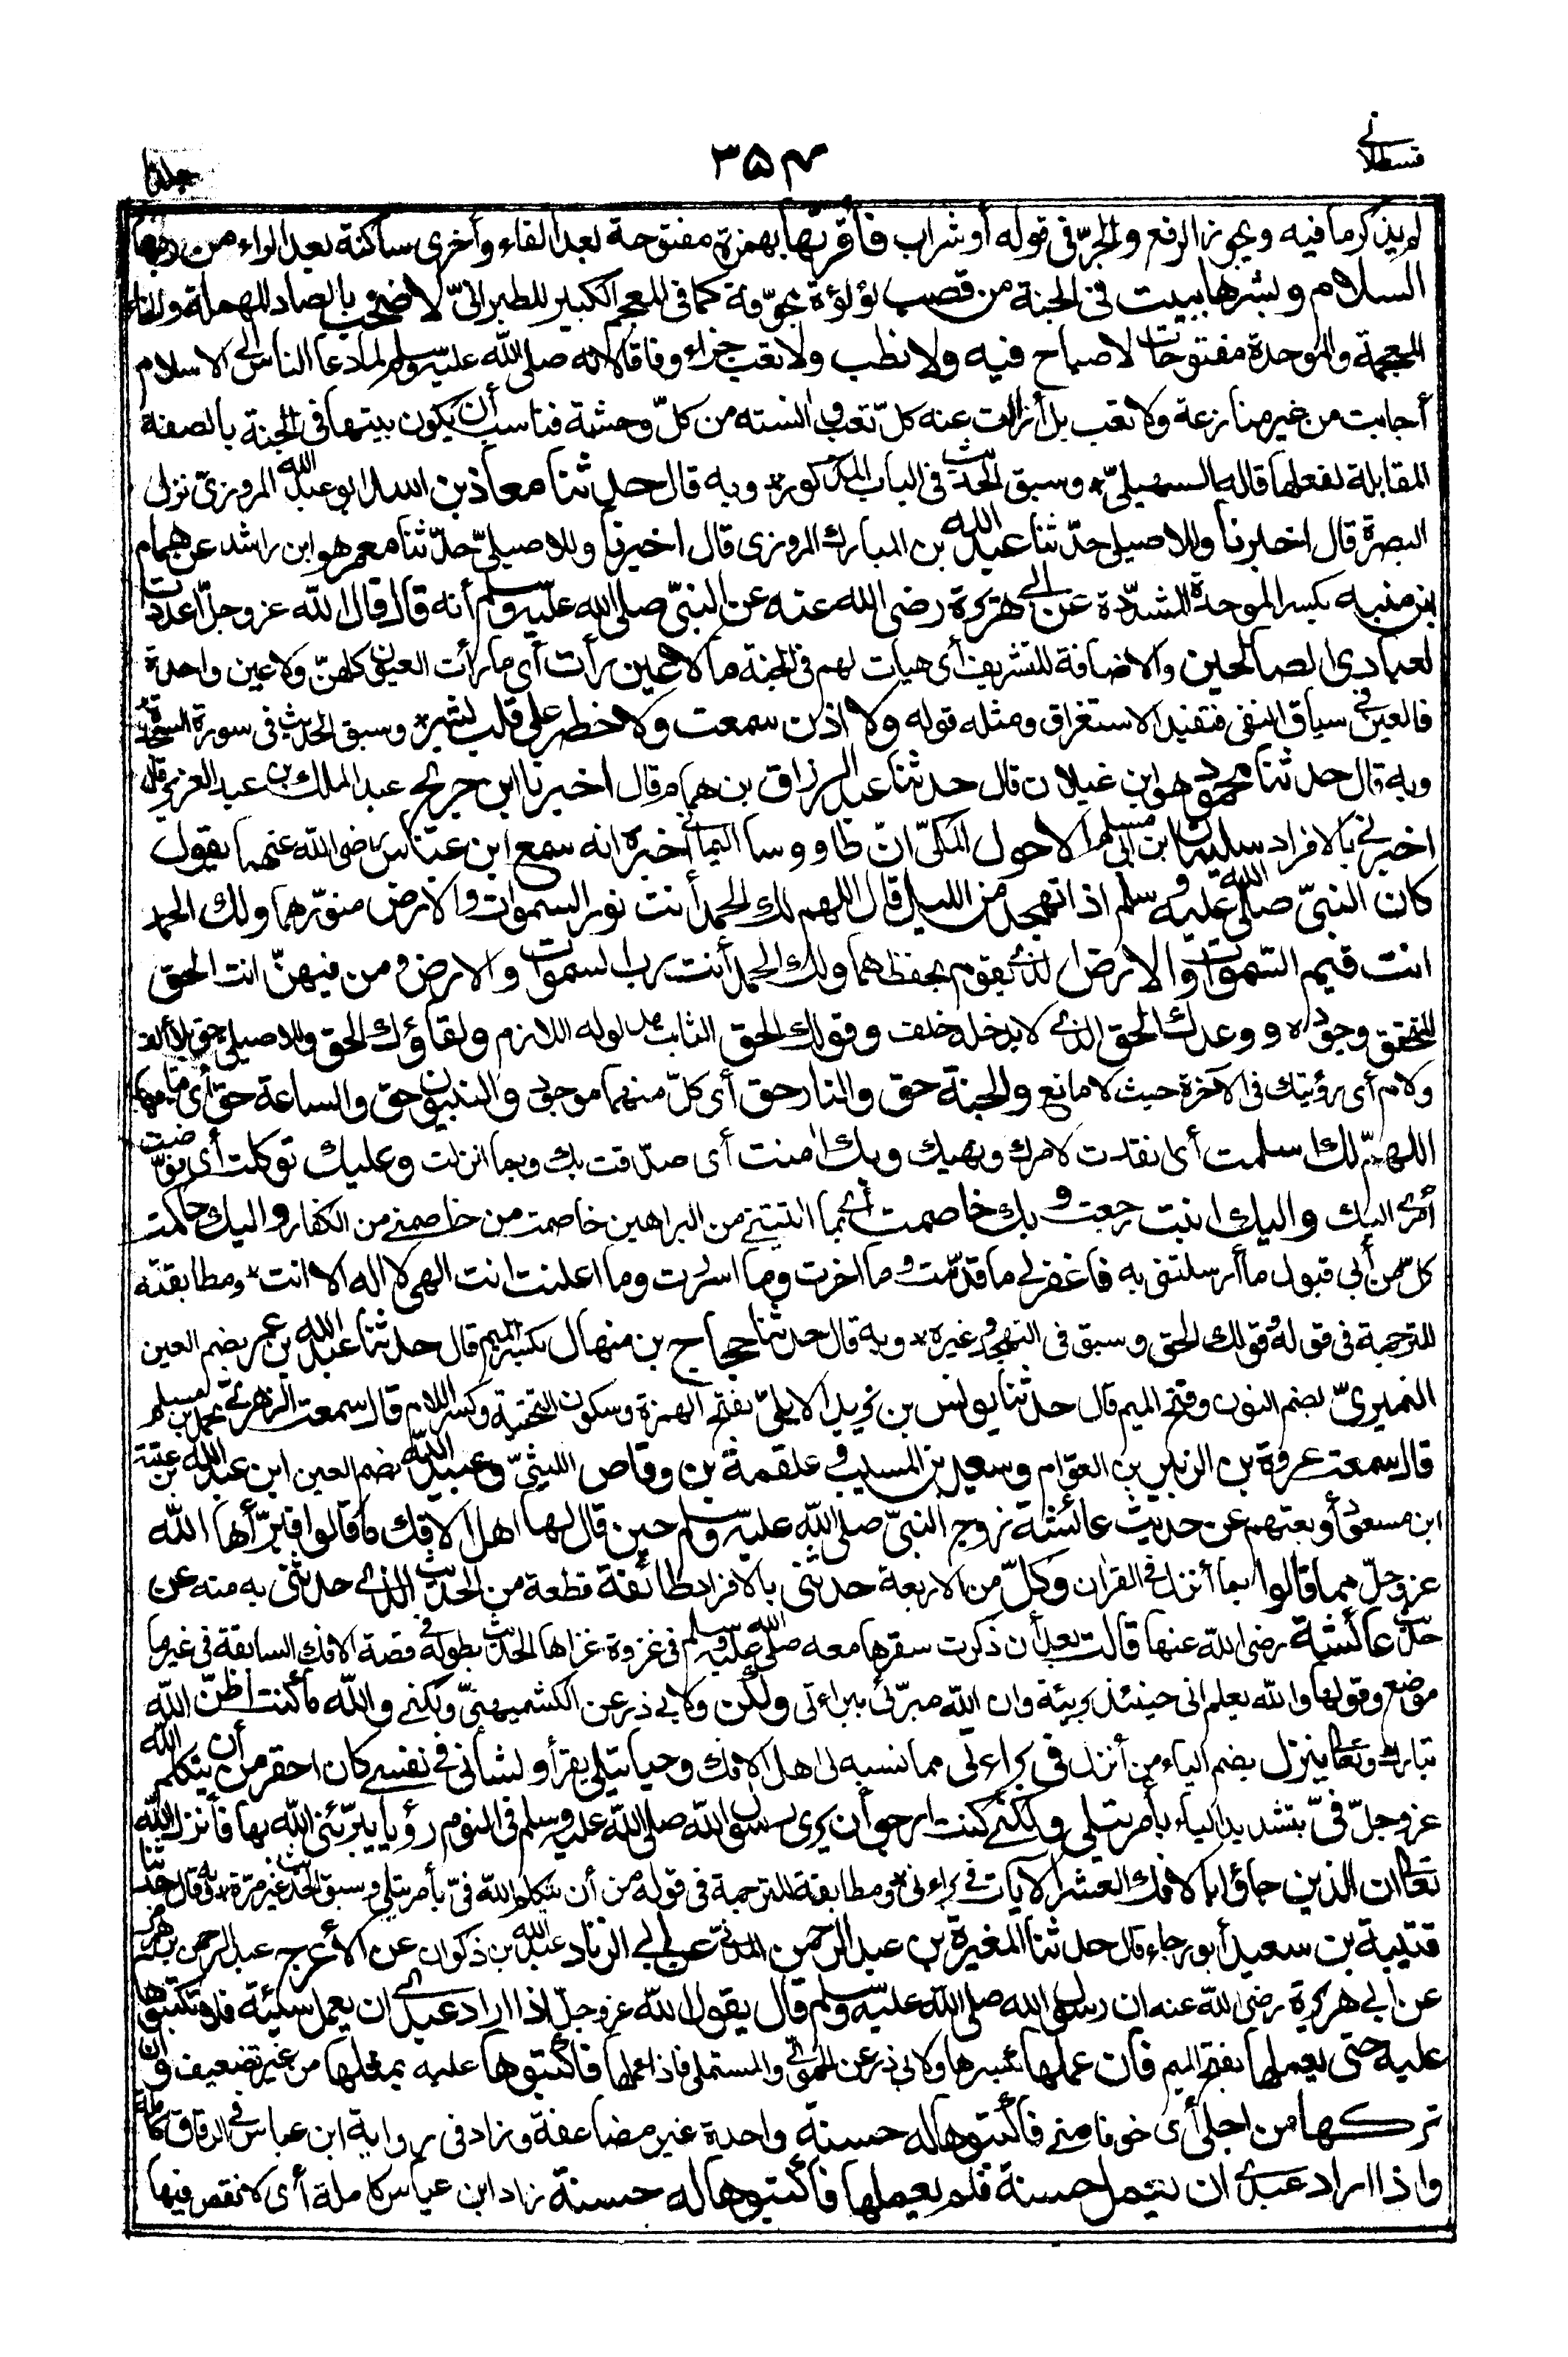 قسطلانی
۳۵۴
جلد۱۰
لم يذكر ما فيه ويجوز الرفع والجرّ فى قوله أو شراب فأقرئها بهمزة مفتوحة بعد الفاء وأخرى ساكنة بعد الراء من ربها
السلام وبشرها ببيت فى الجنة من قصب لؤلؤة مجوّفة كما فى المعجم الكبير للطبرانىّ لا صخب بالصاد المهملة والخاء
المعجمة والموحدة مفتوحات لا صياح فيه ولا نصب ولا تعب جزاء وفاقا لانه صلى الله عليه وسلم لما دعا الناس الى الاسلام
أجابت من غير منازعة ولا تعب بل أزالت عنه كلّ تعب وانسته من كلّ وحشة فناسب أن يكون بيتها فى الجنة بالصفة
المقابلة لفعلها قاله السهيلىّ * وسبق الحديث فى الباب المذكور * وبه قال حدثنا معاذ بن اسد ابو عبد الله المروزىّ نزل
البصرة قال اخبرنا وللاصيلى حدّثنا عبد الله بن المبارك المروزى قال اخبرنا وللاصيلىّ حدّثنا معمر هو ابن راشد عن همام
بن منبه بكسر الموحدة المشدّدة عن ابى هريرة رضى الله عنه عن النبىّ صلى الله عليه وسلم أنه قال قال الله عز وجلّ اعددت
لعبادى الصالحين والاضافة للتشريف أى هيأت لهم فى الجنة ما لا عين رأت أى ما رأت العيون كلهنّ ولا عين واحدة
فالعين فى سياق النفى فتفيد الاستغراق ومثله قوله ولا اذن سمعت ولا خطر على قلب بشر * وسبق الحديث فى سورة السجدة
وبه قال حدثنا محمود هو ابن غيلان قال حدثنا عبد الرزاق بن همام قال اخبرنا ابن جريج عبد الملك بن عبد العزيز قال
اخبرنى بالافراد سليمان ابن ابى مسلم الاحول المكىّ انّ طاووسا اليمانى أخبره انه سمع ابن عباس رضى الله عنهما يقول
كان النبىّ صلى الله عليه وسلم اذا تهجد من الليل قال اللهم لك الحمد أنت نور السموات والارض منوّرهما ولك الحمد
انت قيم السموات والارض الذى يقوم بحفظهما ولك الحمد أنت رب السموات والارض ومن فيهنّ انت الحق
المتحقق وجوده ووعدك الحق الذى لا يدخله خلف وقولك الحق الثابت مدلوله اللازم ولقاؤك الحق وللاصيلى حق بلا ألف
ولام أى رؤيتك فى الآخرة حيث لا مانع والجنة حق والنار حق أى كلّ منهما موجود والنبيون حق والساعة حق أى قيامها
اللهمّ لك اسلمت أى انقدت لامرك ونهيك وبك امنت أى صدّقت بك وبما انزلت وعليك توكلت أى فوّضت
أمرى اليك واليك انبت رجعت وبك خاصمت أى بما اتيتنى من البراهين خاصمت من خاصمنى من الكفار واليك حاكمت
كلّ من أبى قبول ما أرسلتنى به فاغفر لى ما قدّمت وما اخرت وما اسررت وما اعلنت انت الهى لا اله الا انت * ومطابقته
للترجمة فى قوله وقولك الحق وسبق فى التهجد وغيره * وبه قال حدثنا حجاج بن منهال بكسر الميم قال حدثنا عبد الله بن عمر بضم العين
النميرىّ بضم النون وفتح الميم قال حدثنا يونس بن يزيد الايلىّ بفتح الهمزة وسكون التحتية وكسر اللام قال سمعت الزهرى محمد بن مسلم
قال سمعت عروة بن الزبير بن العوّام وسعيد بن المسيب وعلقمة بن وقاص الليثىّ وعبيد الله بضم العين ابن عبد الله بن عتبة
ابن مسعود أربعتهم عن حديث عائشة زوج النبىّ صلى الله عليه وسلم حين قال لها اهل الافك ما قالوا فبرّأها الله
عز وجلّ مما قالوا بما أنزل فى القران وكلّ من الاربعة حدثنى بالافراد طائفة قطعة من الحديث الذى حدثنى به منه عن
حديث عائشة رضى الله عنها قالت بعد أن ذكرت سفرها معه صلى الله عليه وسلم فى غزوة غزاها الحديث بطوله فى قصة الافك السابقة فى غير ما
موضع وقولها والله يعلم انى حينئذ بريئة وان الله مبرّئى ببراءتى ولكن ولابى ذر عن الكشميهنىّ ولكنى والله ما كنت اظنّ الله
تبارك وتعالى ينزل بضم الياء من أنزل فى براءتى مما نسبه لى اهل الافك وحيا يتلى يقرأ ولشانى فى نفسى كان احقر من أن يتكلم الله
عز وجلّ فىّ بتشديد الياء بأمر يتلى ولكنى كنت ارجو أن يرى رسول الله صلى الله عليه وسلم فى النوم رؤيا يبرّئنى الله بها فأنزل الله
تعالى ان الذين جاؤا بالافك العشر الآيات فى براءتى * ومطابقته للترجمة فى قوله من أن يتكلم الله فىّ بأمر يتلى وسبق الحديث غير مرّة * وبه قال حدّثنا
قتيبة بن سعيد أبو رجاء قال حدثنا المغيرة بن عبد الرحمن المدنى عن ابى الزناد عبد الله بن ذكوان عن الأعرج عبد الرحمن بن هرمز
عن ابى هريرة رضى الله عنه ان رسول الله صلى الله عليه وسلم قال يقول الله عز وجلّ اذا اراد عبدى ان يعمل سيئة فلا تكتبوها
عليه حتى يعملها بفتح الميم فان عملها بكسرها ولابى ذر عن الحموى والمستملى فاذا عملها فاكتبوها عليه بمثلها من غير تضعيف وان
تركها من اجلى أى خوفا منى فاكتبوها له حسنة واحدة غير مضاعفة وزاد فى رواية ابن عباس فى الرقاق كاملة
واذا اراد عبدى ان يعمل حسنة فلم يعملها فاكتبوها له حسنة زاد ابن عباس كاملة أى لا نقص فيها